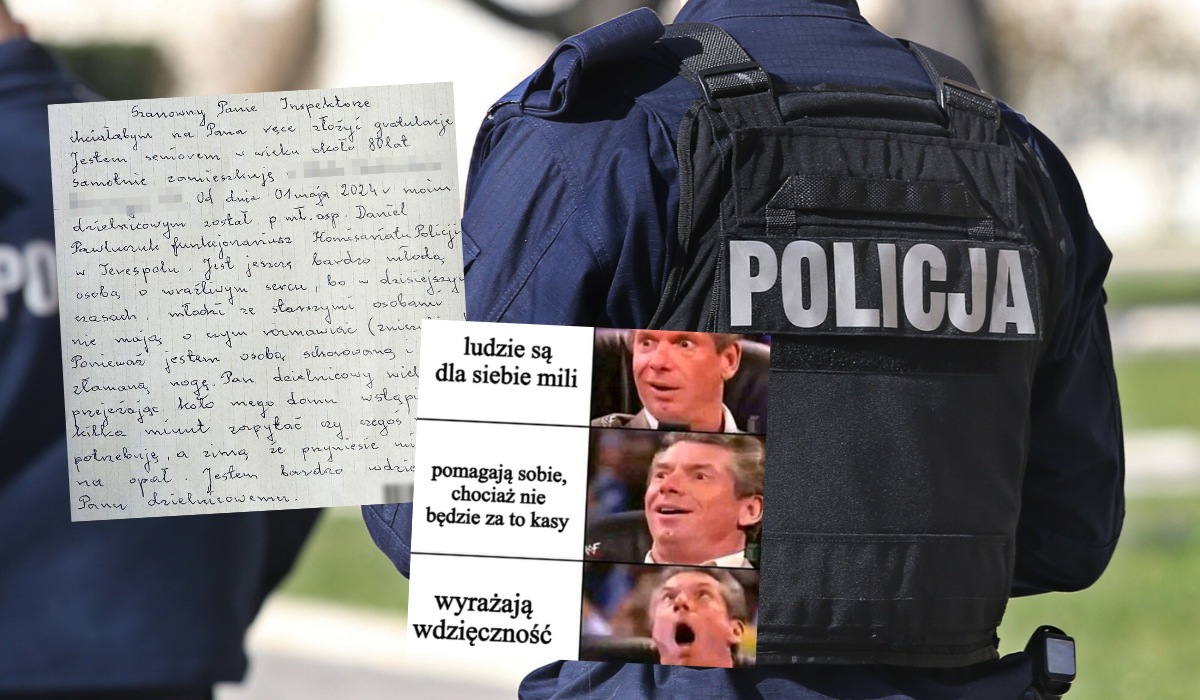 Szanowny Panie Inspektorze
chciałabym na Pana ręce złożyć gratulacje
Jestem seniorem w wieku około 80 lat
samotnie zamieszkuję
Od dnia 01 maja 2024 r moim
dzielnicowym został p. mł. asp. Daniel
Pawluczuk funkcjonariusz Komisariatu Policji
w Terespolu. Jest jeszcze bardzo młodą
osobą o wrażliwym sercu, bo w dzisiejszych
czasach młodzi ze starszymi osobami
nie mają o czym rozmawiać
Ponieważ jestem osobą schorowaną i
złamaną nogę. Pan dzielnicowy
przejeżając koło mego domu
kilka minut zapytać czy czegoś
potrzebuję, a zimą że przyniesie
na opał. Jestem bardzo
Panu dzielnicowemu.
PO
POLICJA
ludzie są
dla siebie mili
pomagają sobie,
chociaż nie
będzie za to kasy
wyrażają
wdzięczność